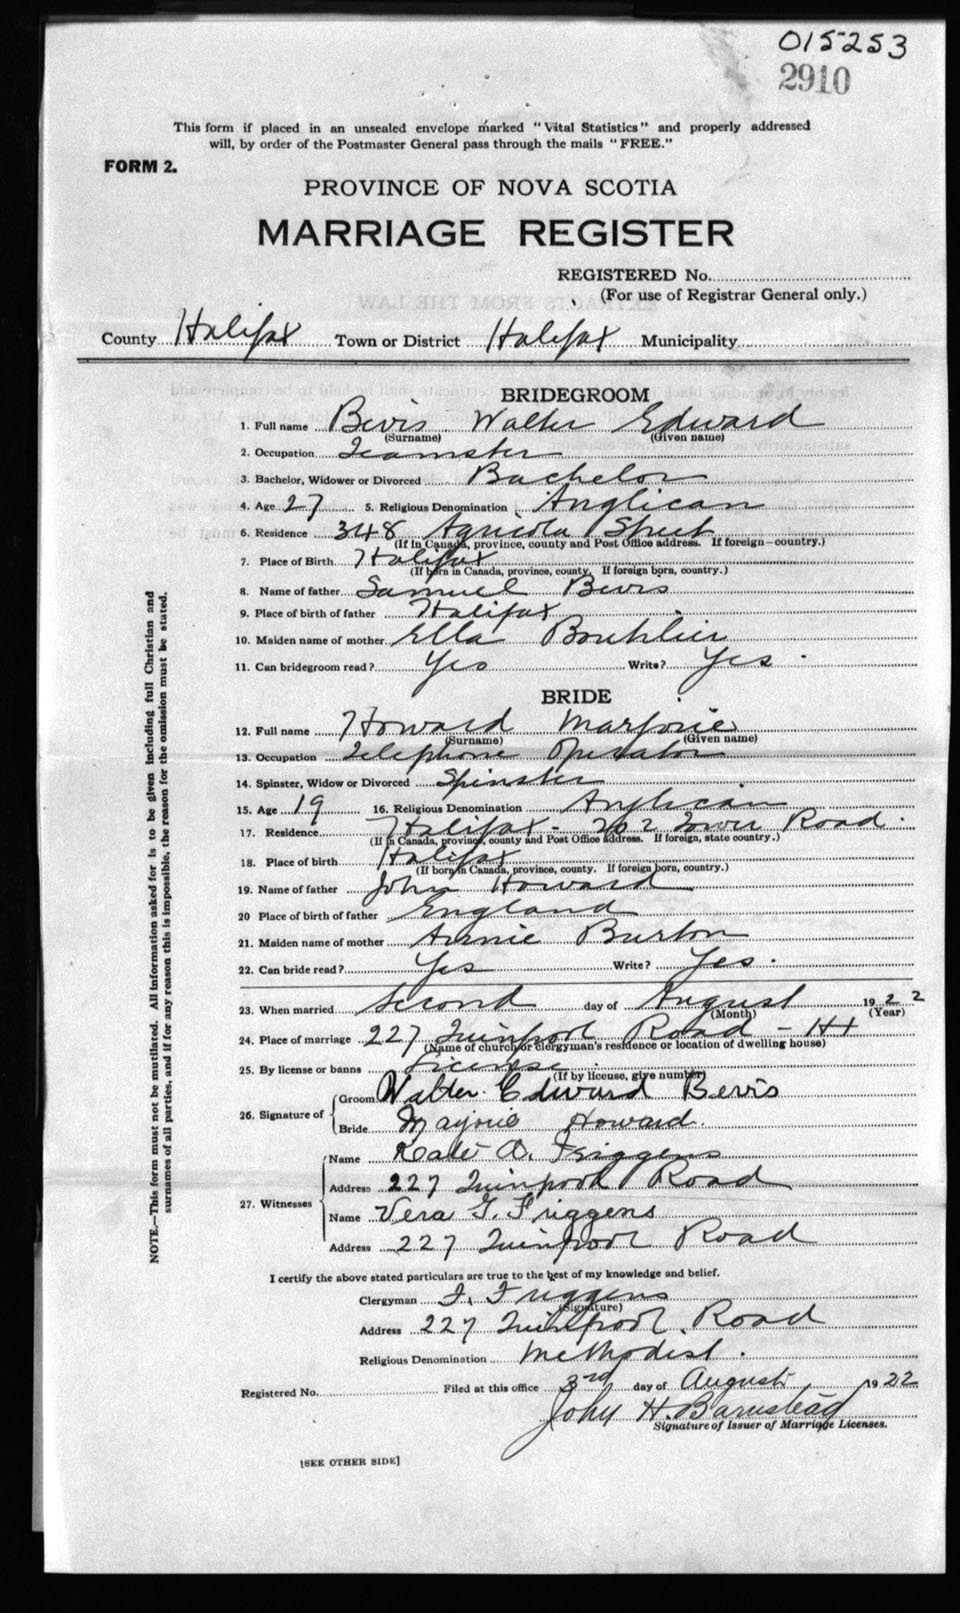 015253
2910
This form if placed in an unsealed envelope marked "Vital Statistics" and properly addressed
will, by order of the Postmaster General pass through the mails "FREE."
FORM 2.
PROVINCE OF NOVA SCOTIA
MARRIAGE REGISTER
REGISTERED No.
(For use of Registrar General only.)
County Halifax Town or District Halifax Municipality
BRIDEGROOM
1. Full name Bevis Walter Edward
(Surname) (Given name)
2. Occupation Teamster
3. Bachelor, Widower or Divorced Bachelor
4. Age 27 5. Religious Denomination Anglican
6. Residence 348 Agricola Street
(If in Canada, province, county and Post Office address. If foreign—country.)
7. Place of Birth Halifax
(If born in Canada, province, county. If foreign born, country.)
8. Name of father Samuel Bevis
9. Place of birth of father Halifax
10. Maiden name of mother Ella Bouhlier
11. Can bridegroom read? Yes Write? Yes.
BRIDE
12. Full name Howard Marjorie
(Surname) (Given name)
13. Occupation Telephone Operator
14. Spinster, Widow or Divorced Spinster
15. Age 19 16. Religious Denomination Anglican
17. Residence Halifax - 202 Tower Road.
(If in Canada, province, county and Post Office address. If foreign, state country.)
18. Place of birth Halifax
(If born in Canada, province, county. If foreign born, country.)
19. Name of father John Howard
20 Place of birth of father England
21. Maiden name of mother Annie Burton
22. Can bride read? Yes Write? Yes.
23. When married second day of August 1922
(Month) (Year)
24. Place of marriage 227 Quinpool Road - Hx
(Name of church or clergyman's residence or location of dwelling house)
25. By license or banns License
(If by license, give number)
26. Signature of Groom Walter Edward Bevis
Bride Marjorie Howard.
27. Witnesses Name Kate A. Friggens
Address 227 Quinpool Road
Name Vera G. Friggens
Address 227 Quinpool Road
I certify the above stated particulars are true to the best of my knowledge and belief.
Clergyman F. Friggens
(Signature)
Address 227 Quinpool Road
Religious Denomination Methodist.
Registered No. Filed at this office 3rd day of August 1922
John H. Barnstead
Signature of Issuer of Marriage Licenses.
[SEE OTHER SIDE]
NOTE.—This form must not be mutilated. All information asked for is to be given including full Christian and
surnames of all parties, and if for any reason this is impossible, the reason for the omission must be stated.